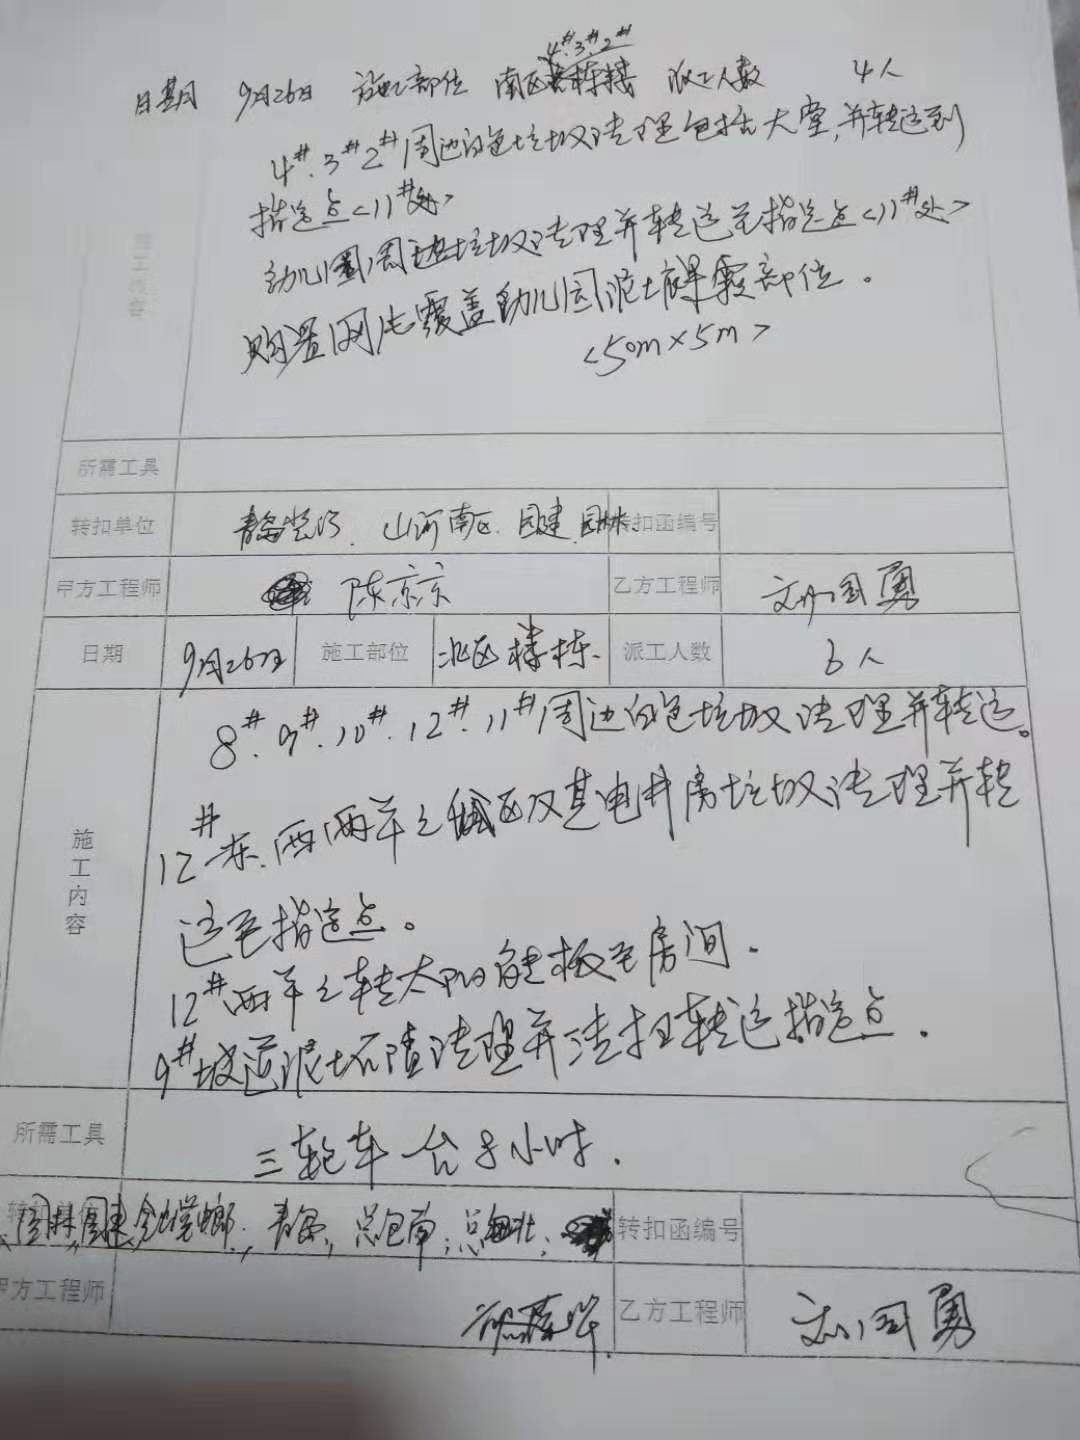 4#.3#.2#
日期 9月26日 施工部位 南区楼栋 派工人数 4人
施工内容
4#.3#2#周边白色垃圾清理包括大堂,并转运到
指定点<11#处>
幼儿园周边垃圾清理并转运至指定点<11#处>
购置网片覆盖幼儿园混土裸露部位。
<50m×5m>
所需工具
转扣单位 青岛 山河南区.园建.园林. 转扣函编号
甲方工程师 陈京京 乙方工程师 刘国勇
日期 9月26日 施工部位 北区楼栋. 派工人数 6人
施工内容
8#.9#.10#.12#.11#周边白色垃圾清理并转运。
12#东.西两单元 区及其电井房垃圾清理并转
运至指定点。
12#西单元转太阳能板至房间.
9#坡道混土石渣清理并清扫转运指定点.
所需工具 三轮车一台8小时.
转扣单位 园林,园建,金螳螂,青岛,总包南;总包北; 转扣函编号
甲方工程师 乙方工程师 刘国勇